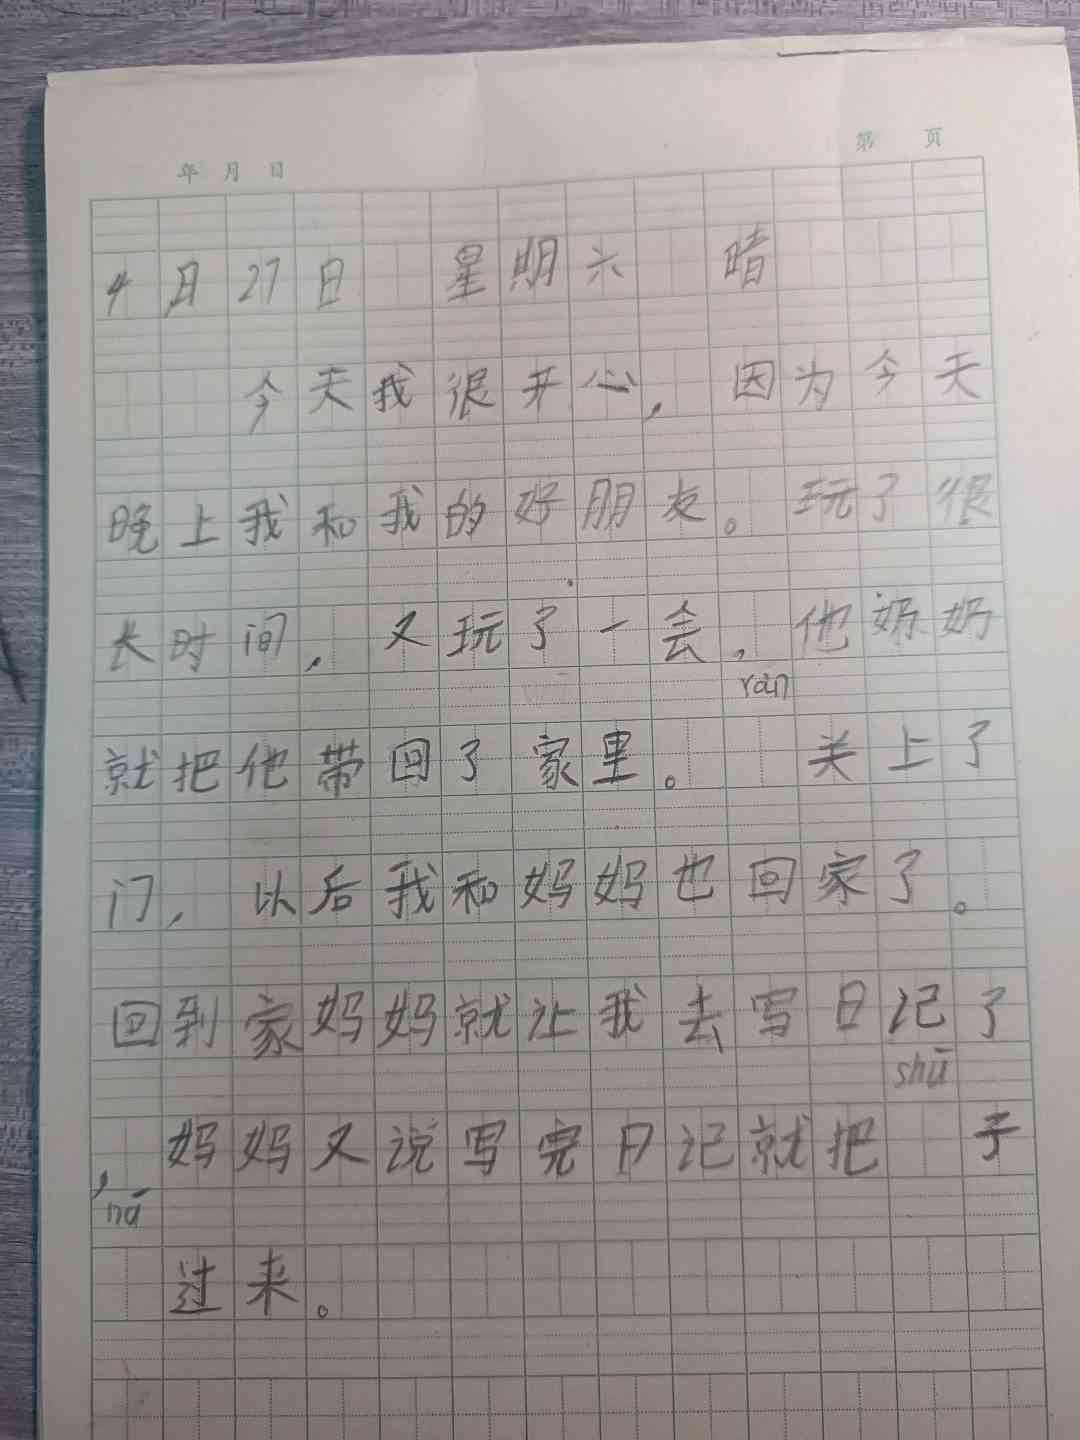 年 月 日 第 页
4月27日 星期六 晴
今天我很开心，因为今天
晚上我和我的好朋友。玩了很
长时间，又玩了一会，他奶奶
rán
就把他带回了家里。 关上了
门，以后我和妈妈也回家了。
回到家妈妈就让我去写日记了
shū
，妈妈又说写完日记就把 子
ná
过来。